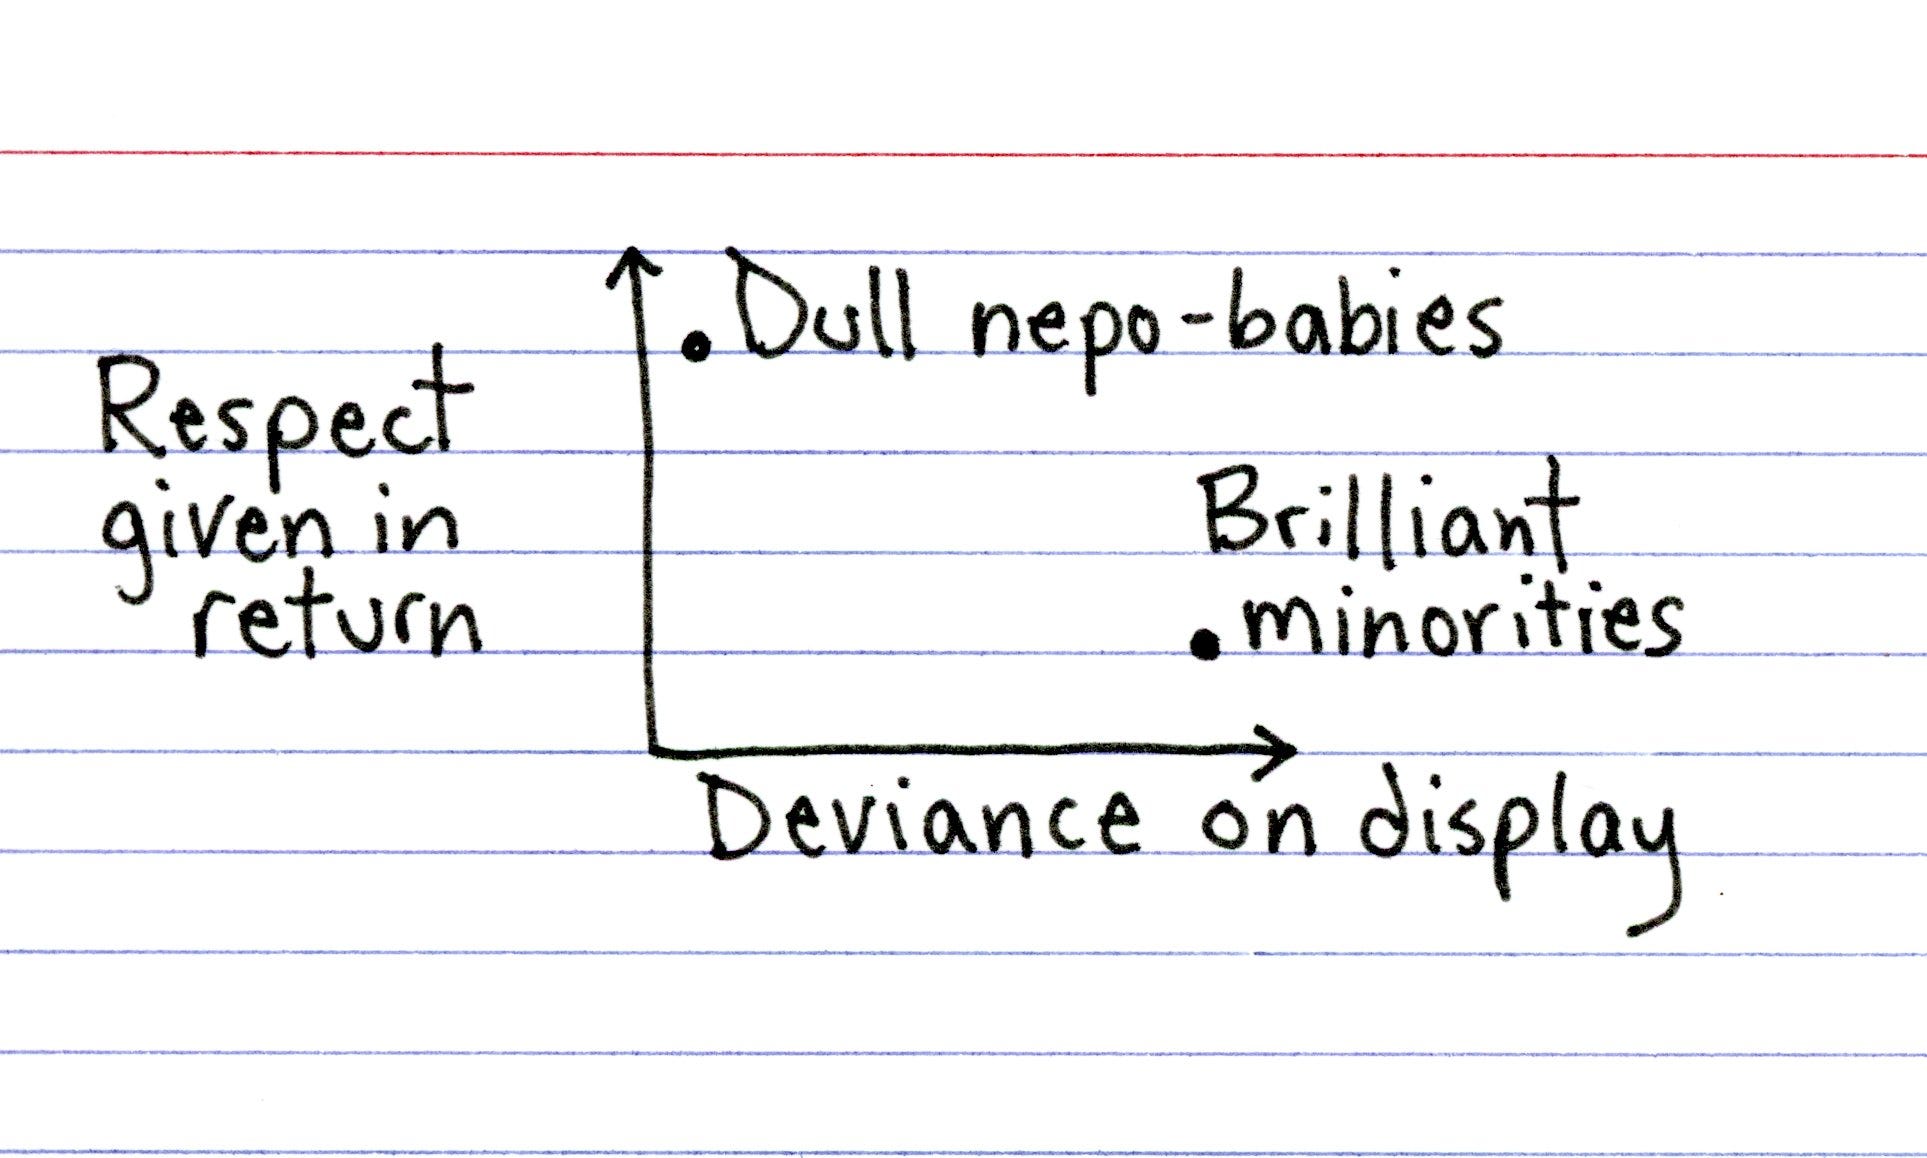 Dull nepo-babies
Respect
given in
return
Brilliant
minorities
Deviance on display